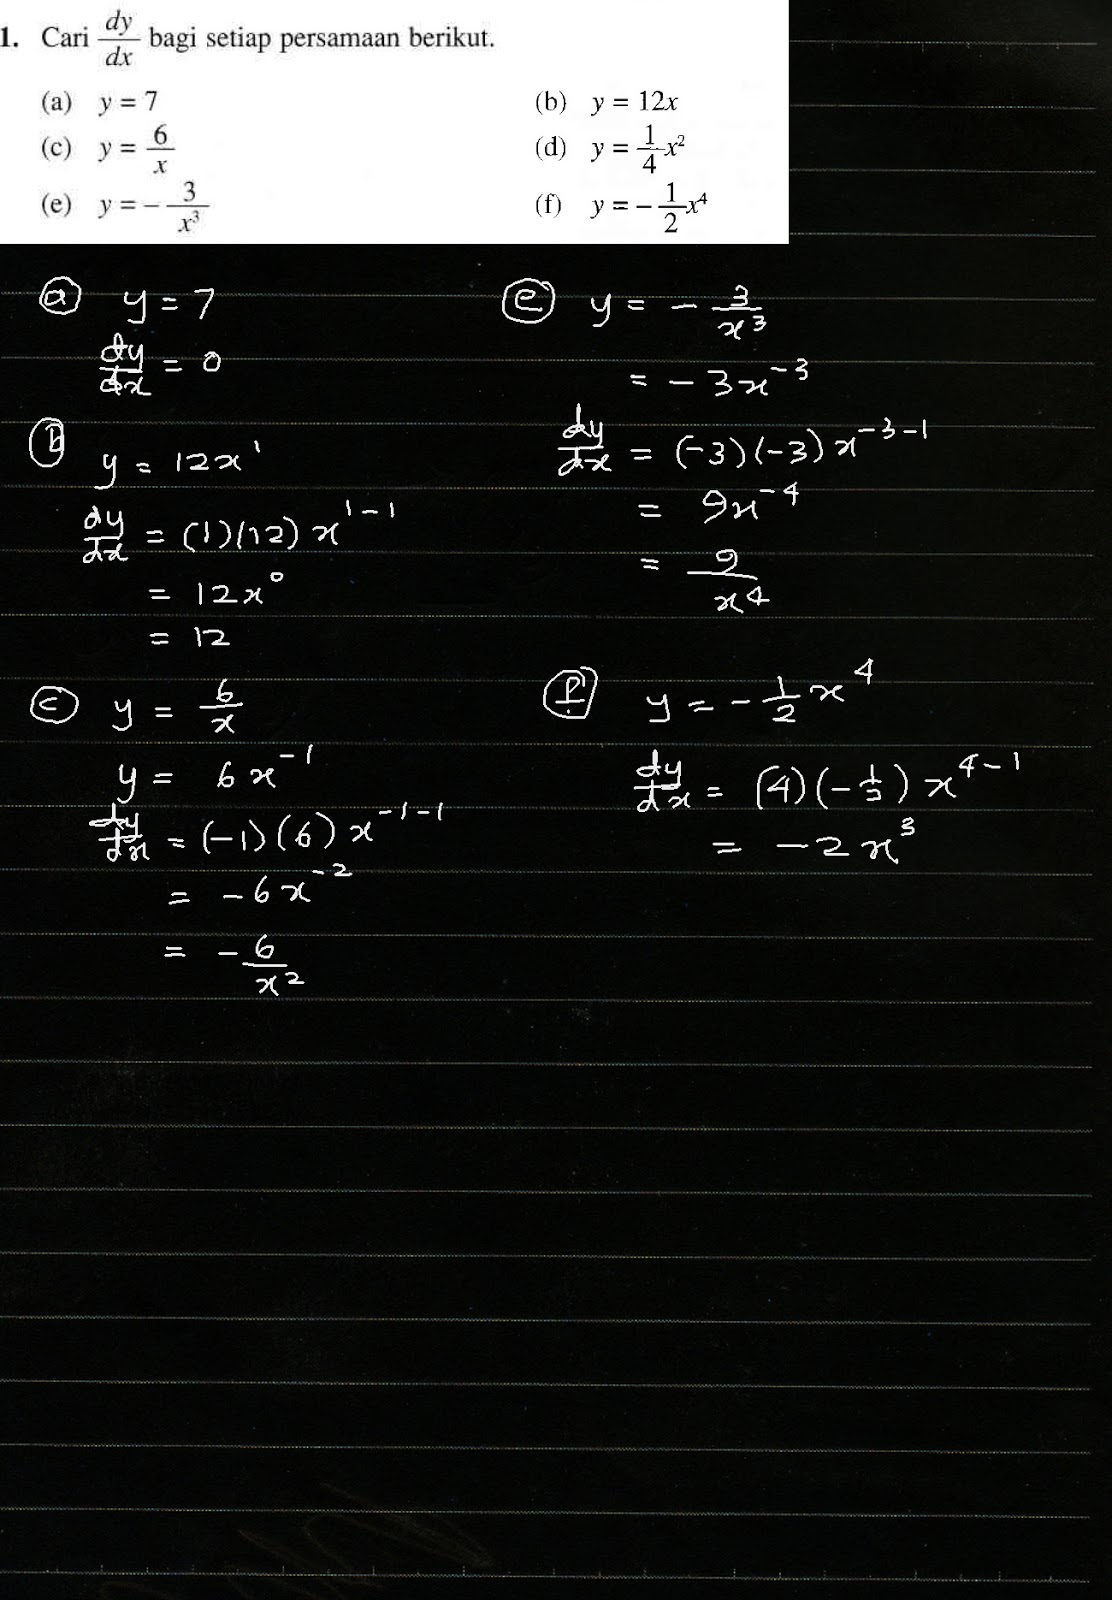 1. Cari dy/dx bagi setiap persamaan berikut.
(a) y = 7
(b) y = 12x
(c) y = 6/x
(d) y = 1/4 x²
(e) y = − 3/x³
(f) y = − 1/2 x⁴
(a) y = 7
dy/dx = 0
(b) y = 12x¹
dy/dx = (1)(12) x¹⁻¹
= 12x⁰
= 12
(c) y = 6/x
y = 6x⁻¹
dy/dx = (−1)(6) x⁻¹⁻¹
= −6x⁻²
= − 6/x²
(e) y = − 3/x³
= −3x⁻³
dy/dx = (−3)(−3) x⁻³⁻¹
= 9x⁻⁴
= 9/x⁴
(f) y = − 1/2 x⁴
dy/dx = (4)(− 1/2) x⁴⁻¹
= −2x³